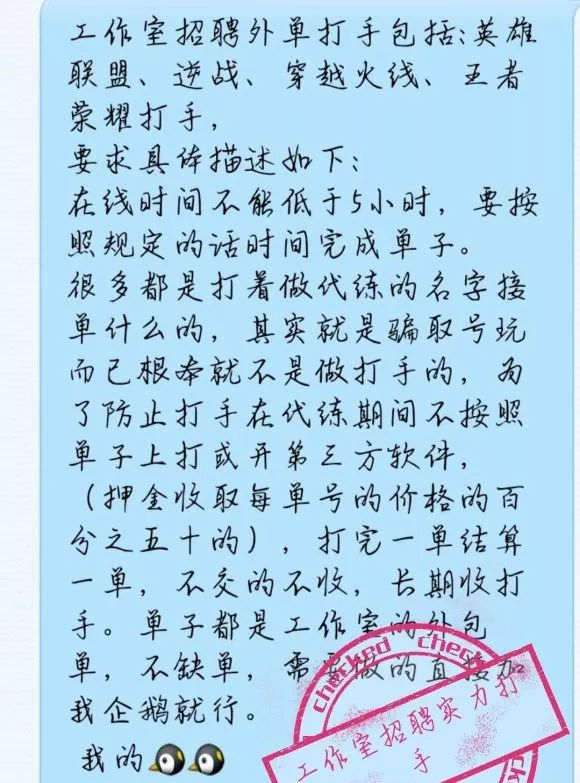 工作室招聘外单打手包括:英雄
联盟、逆战、穿越火线、王者
荣耀打手，
要求具体描述如下：
在线时间不能低于5小时，要按
照规定的话时间完成单子。
很多都是打着做代练的名字接
单什么的，其实就是骗取号玩
而已根本就不是做打手的，为
了防止打手在代练期间不按照
单子上打或开第三方软件，
（押金收取每单号的价格的百
分之五十的），打完一单结算
一单，不交的不收，长期收打
手。单子都是工作室的外包
单，不缺单，需要做的直接加
我企鹅就行。
我的
checked check
工作室招聘实力打
手